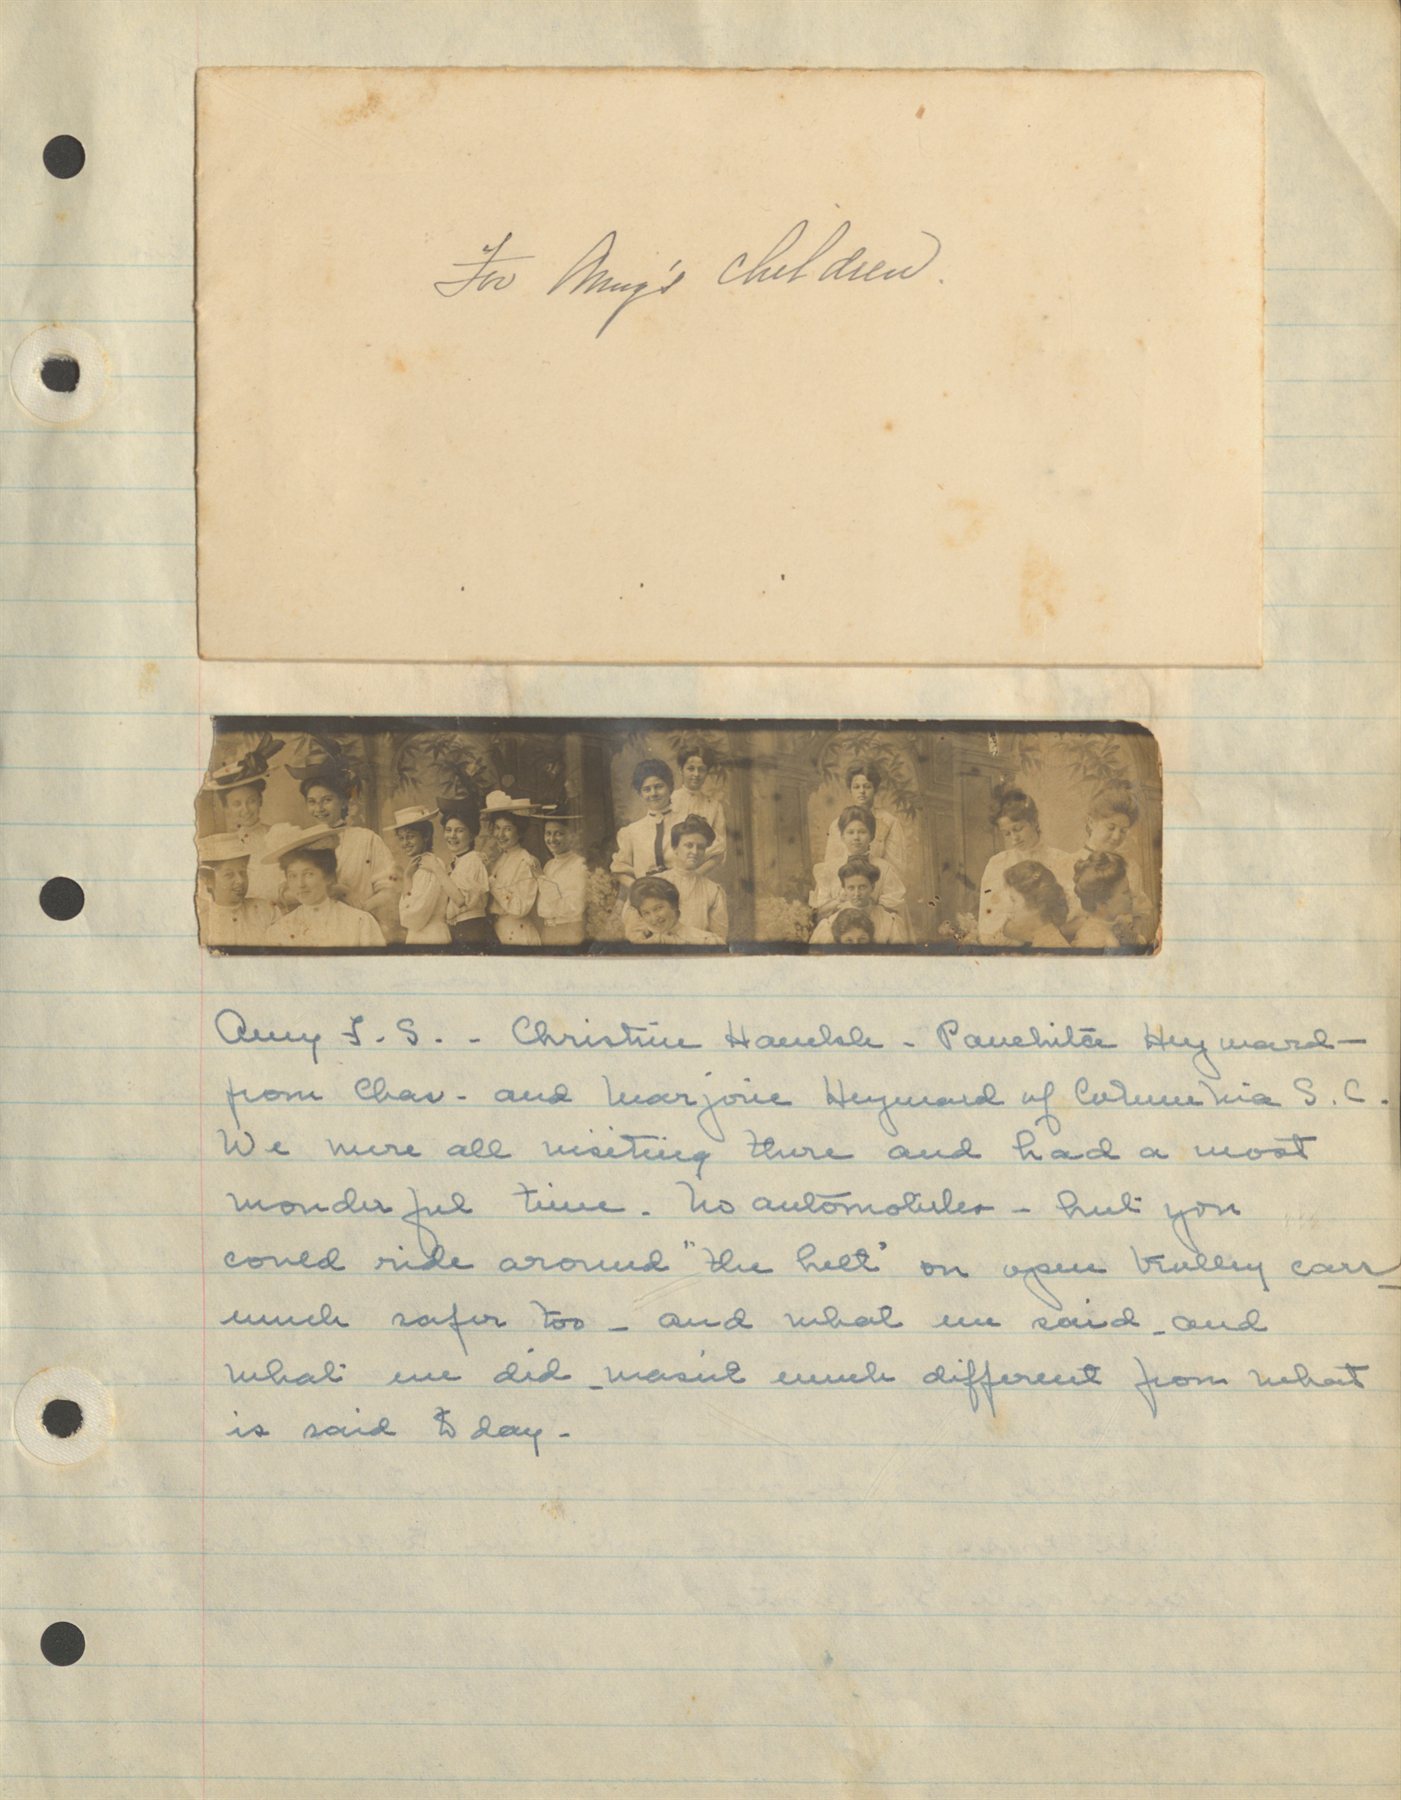 For Amy's children.
Amy F. S. - Christine - Panchita Heyward -
from Chas - and Marjorie Heyward of Columbia S. C.
We were all visiting there and had a most
wonderful time. No automobiles - but you
could ride around "the belt" on open trolley cars
much safer too - and what we said - and
what we did - wasn't much different from what
is said today -